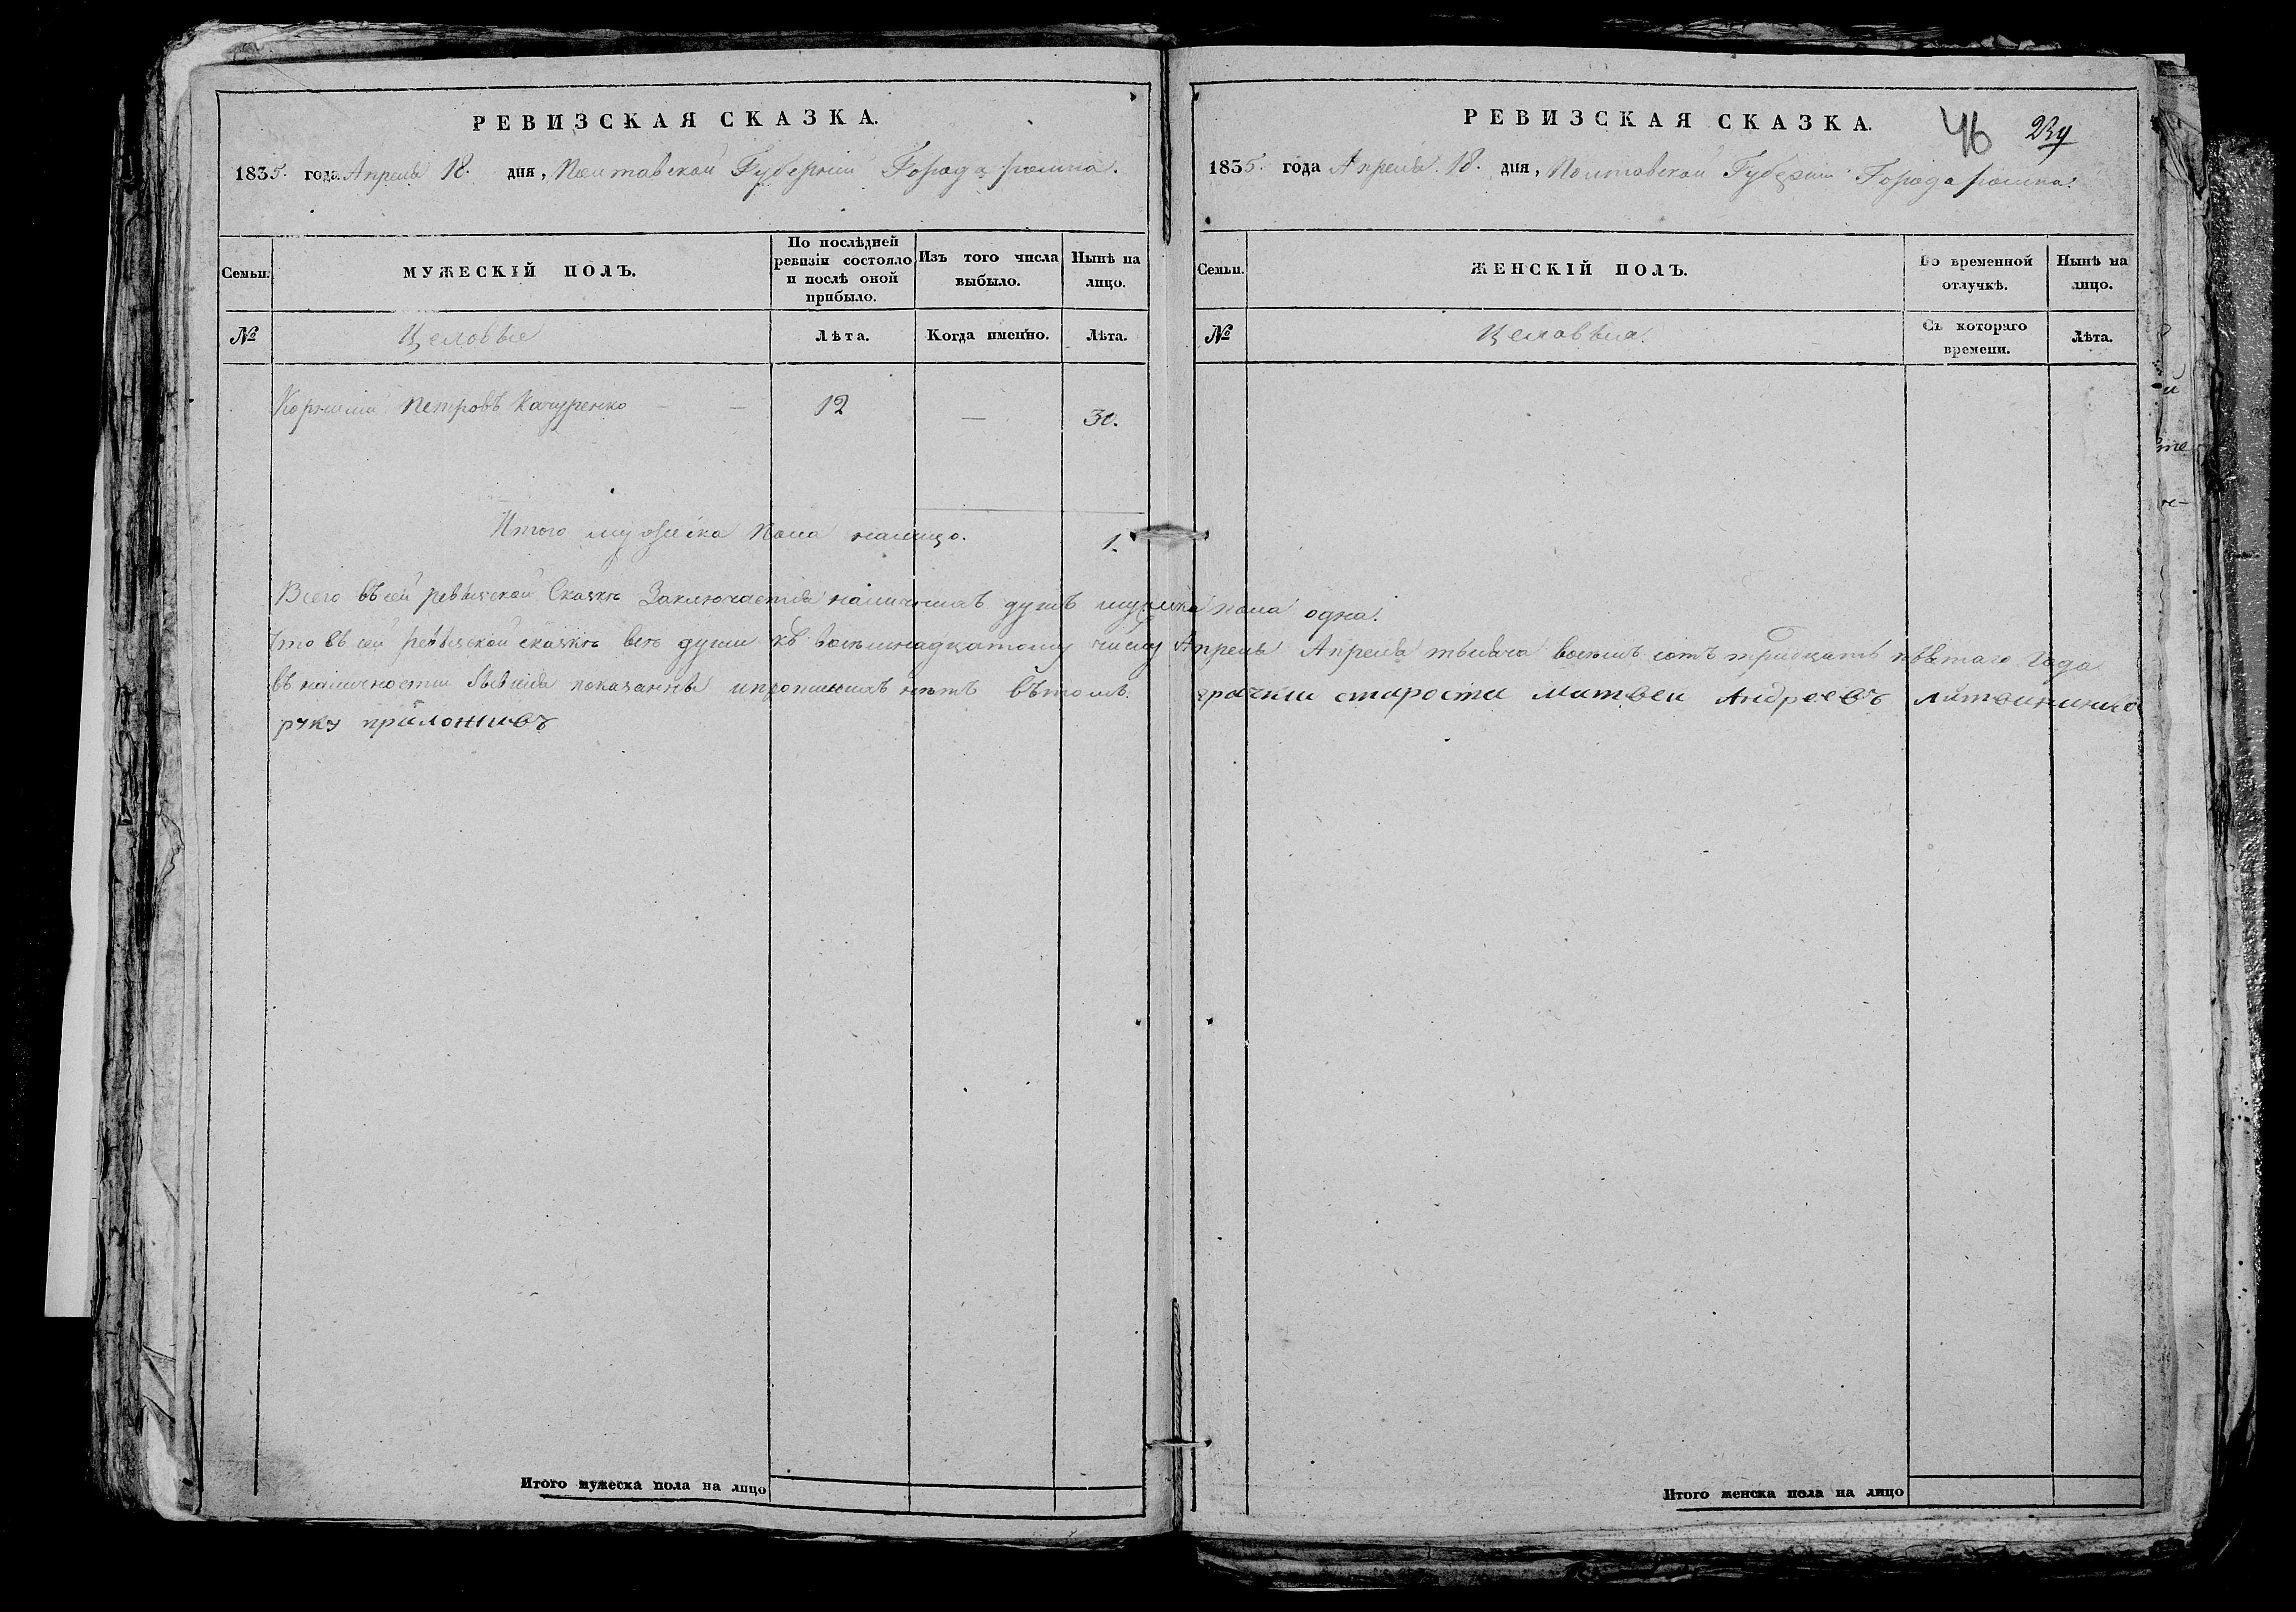 РЕВИЗСКАЯ СКАЗКА.
1835. года Апреля 18. дня, Полтавской Губернии Города ромна.
Семьи.
МУЖЕСКІЙ ПОЛЪ.
По послѣдней ревизіи состояло и послѣ оной прибыло.
Изъ того числа выбыло.
Нынѣ на лицо.
№
Лѣта.
Когда именно.
Лѣта.
Петровъ Качуренко 12 — 30.
Итого мужеска пола налицо. 1.
Всего въ сей ревизской Сказкѣ Заключается наличныхъ душъ мужска пола одна.
Что въ сей ревизской сказкѣ всѣ души къ восемнадцатому числу Апреля
въ наличности показанны и пропискныхъ нѣтъ въ томъ.
руку приложивъ
Итого мужеска пола на лицо
РЕВИЗСКАЯ СКАЗКА.
46 234
1835. года Апреля. 18. дня, Полтавской Губернии Города ромна.
Семьи.
ЖЕНСКІЙ ПОЛЪ.
Во временной отлучкѣ.
Нынѣ на лицо.
№
Съ котораго времени.
Лѣта.
Апреля тысяча восемь сотъ тридцать пятаго Года
староста Матвеи Андреевъ
Итого женска пола на лицо